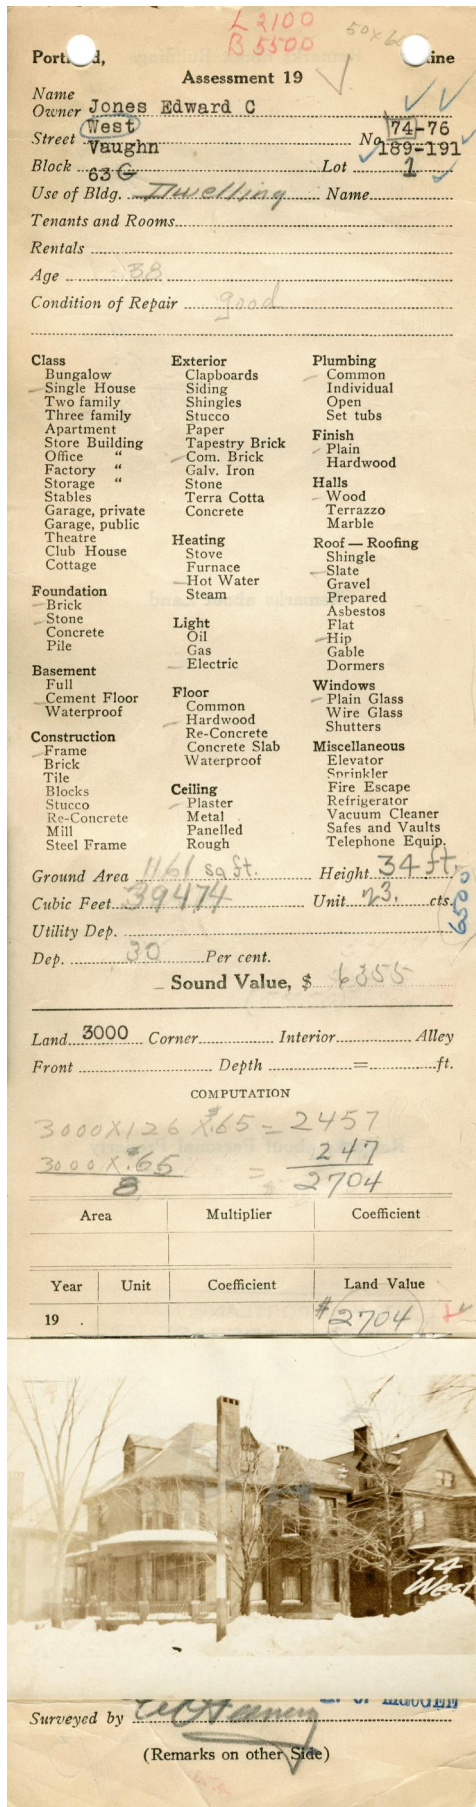 L 2100
B 5500
50 x 60
Portland, Maine
Assessment 19
Name
Owner Jones Edward C
Street West No 74-76
Vaughn 189-191
Block 63 G Lot 1
Use of Bldg. Dwelling Name
Tenants and Rooms
Rentals
Age 38
Condition of Repair good
Class
Bungalow
Single House
Two family
Three family
Apartment
Store Building
Office "
Factory "
Storage "
Stables
Garage, private
Garage, public
Theatre
Club House
Cottage
Foundation
Brick
Stone
Concrete
Pile
Basement
Full
Cement Floor
Waterproof
Construction
Frame
Brick
Tile
Blocks
Stucco
Re-Concrete
Mill
Steel Frame
Exterior
Clapboards
Siding
Shingles
Stucco
Paper
Tapestry Brick
Com. Brick
Galv. Iron
Stone
Terra Cotta
Concrete
Heating
Stove
Furnace
Hot Water
Steam
Light
Oil
Gas
Electric
Floor
Common
Hardwood
Re-Concrete
Concrete Slab
Waterproof
Ceiling
Plaster
Metal
Panelled
Rough
Plumbing
Common
Individual
Open
Set tubs
Finish
Plain
Hardwood
Halls
Wood
Terrazzo
Marble
Roof — Roofing
Shingle
Slate
Gravel
Prepared
Asbestos
Flat
Hip
Gable
Dormers
Windows
Plain Glass
Wire Glass
Shutters
Miscellaneous
Elevator
Sprinkler
Fire Escape
Refrigerator
Vacuum Cleaner
Safes and Vaults
Telephone Equip.
Ground Area 1161 sq ft. Height 34 ft.
Cubic Feet 39474 Unit 23. cts.
6500
Utility Dep.
Dep. 30 Per cent.
Sound Value, $ 6355
Land 3000 Corner Interior Alley
Front Depth = ft.
COMPUTATION
3000 X 126 X $.65 = 2457
3000 X $.65 = 247
8 2704
Area Multiplier Coefficient
Year Unit Coefficient Land Value
19 . $2704
74
West
Surveyed by
(Remarks on other Side)